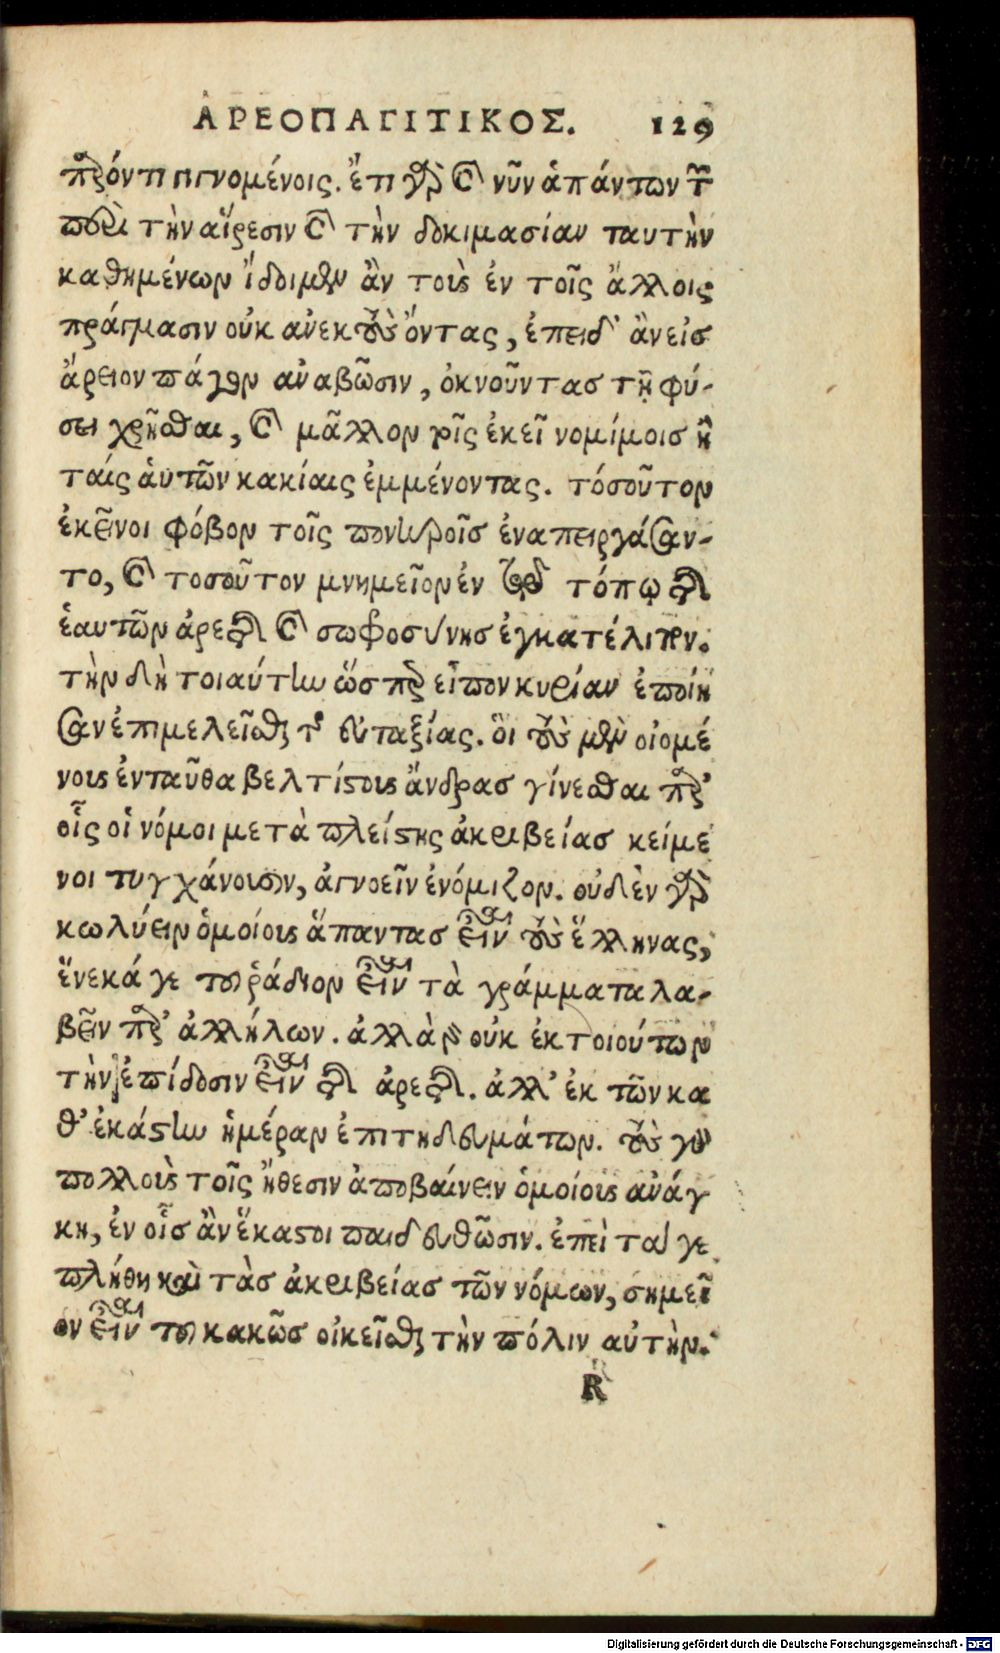 ΑΡΕΟΠΑΓΙΤΙΚΟΣ. 129
παρόντι γιγνομένοις. ἔτι γὰρ καὶ νῦν ἁπάντων τῶν
περὶ τὴν αἵρεσιν καὶ τὴν δοκιμασίαν ταυτὴν
καθημένων ἴδοιμεν ἂν τοὺς ἐν τοῖς ἄλλοις
πράγμασιν οὐκ ἀνεκτοὺς ὄντας, ἐπειδ' ἂν εἰσ
ἄρειον πάγον ἀναβῶσιν, ὀκνοῦντας τῇ φύ-
σει χρῆσθαι, καὶ μᾶλλον τοῖς ἐκεῖ νομίμοισ ἢ
ταίς ἁυτῶν κακίαις ἐμμένοντας. τόσοῦτον
ἐκεῖνοι φόβον τοῖς πονηροῖσ ἐναπειργάσαν-
το, καὶ τοσοῦτον μνημεῖον ἐν τῷ τόπῳ τῆς
ἑαυτῶν ἀρετῆς καὶ σωφροσύνησ ἐγκατέλιπον.
τὴν δὴ τοιαύτην ὥσπερ εἶπον κυρίαν ἐποίη
σαν ἐπιμελεῖσθαι τῆς εὐταξίας. ὃι τοὺς μὲν οἰομέ
νους ἐνταῦθα βελτίστους ἄνδρασ γίνεσθαι παρ'
οἷς οἱ νόμοι μετὰ πλείστης ἀκριβείασ κείμε
νοι τυγχάνουσιν, ἀγνοεῖν ἐνόμιζον. οὐδὲν γὰρ
κωλύειν ὁμοίους ἅπαντασ εἶναι τοὺς ἕλληνας,
ἕνεκά γε του ῥάδιον εἶναι τὰ γράμματα λα-
βεῖν παρ' ἀλλήλων. ἀλλὰ γὰρ οὐκ ἐκ τοιούτων
τὴν ἐπίδοσιν εἶναι τῆς ἀρετῆς. ἀλλ' ἐκ τῶν κα
θ' ἑκάστην ἡμέραν ἐπιτηδευμάτων. τοὺς γὰρ
πολλοὺς τοῖς ἤθεσιν ἀποβαίνειν ὁμοίους ἀνάγ
κη, ἐν οἷσ ἂν ἕκαστοι παιδευθῶσιν. ἐπεὶ τά γε
πλήθη καὶ τὰσ ἀκριβείασ τῶν νόμων, σημεῖ
ον εἶναι του κακῶσ οἰκεῖσθαι τὴν πόλιν αὐτὴν.
R
Digitalisierung gefördert durch die Deutsche Forschungsgemeinschaft - DFG